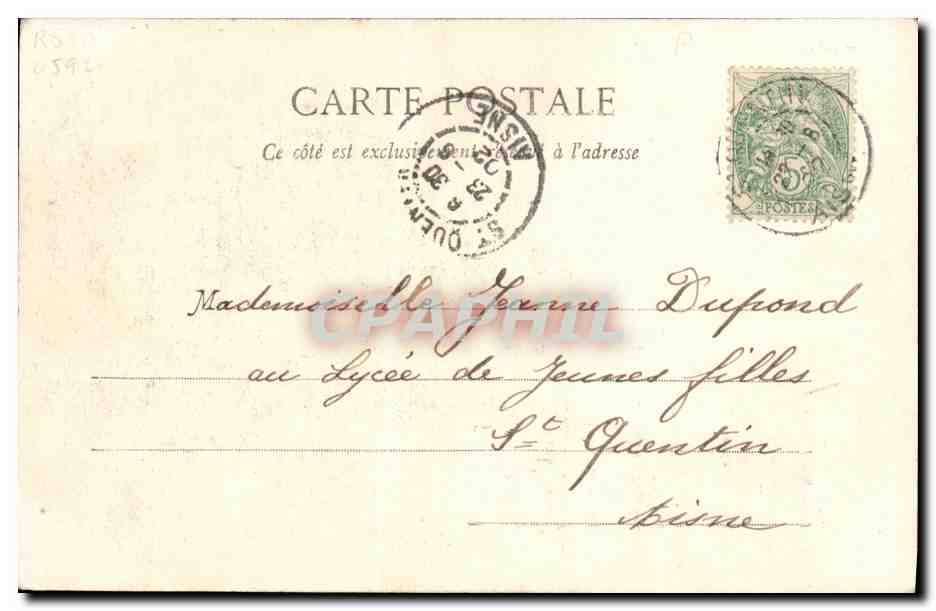 CARTE POSTALE
Ce côté est exclusivement réservé à l'adresse
ST QUENTIN
AISNE
8 30
23 - 6
02
5
POSTES
Mademoiselle Jeanne Dupond
CPAPHIL
au Lycée de Jeunes filles
St Quentin
Aisne